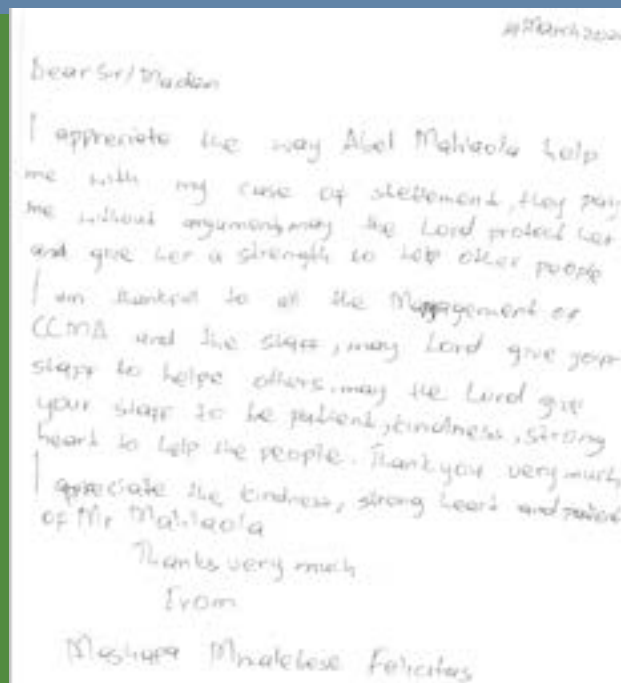 March 202
Dear Sir/Madam
I appreciate the way Abel Mahlaola help
me with my case of stettement, they pay
me without argument, may the Lord protect her
and give her a strength to help other people
I am thankful to all the Management of
CCMA and the staff, may Lord give your
staff to helpe others, may the Lord give
your staff to be patient, kindness, strong
heart to help the people. Thank you very much,
I appreciate the kindness, strong heart and patient
of Mr Mahlaola
Thanks very much
From
Felicitas